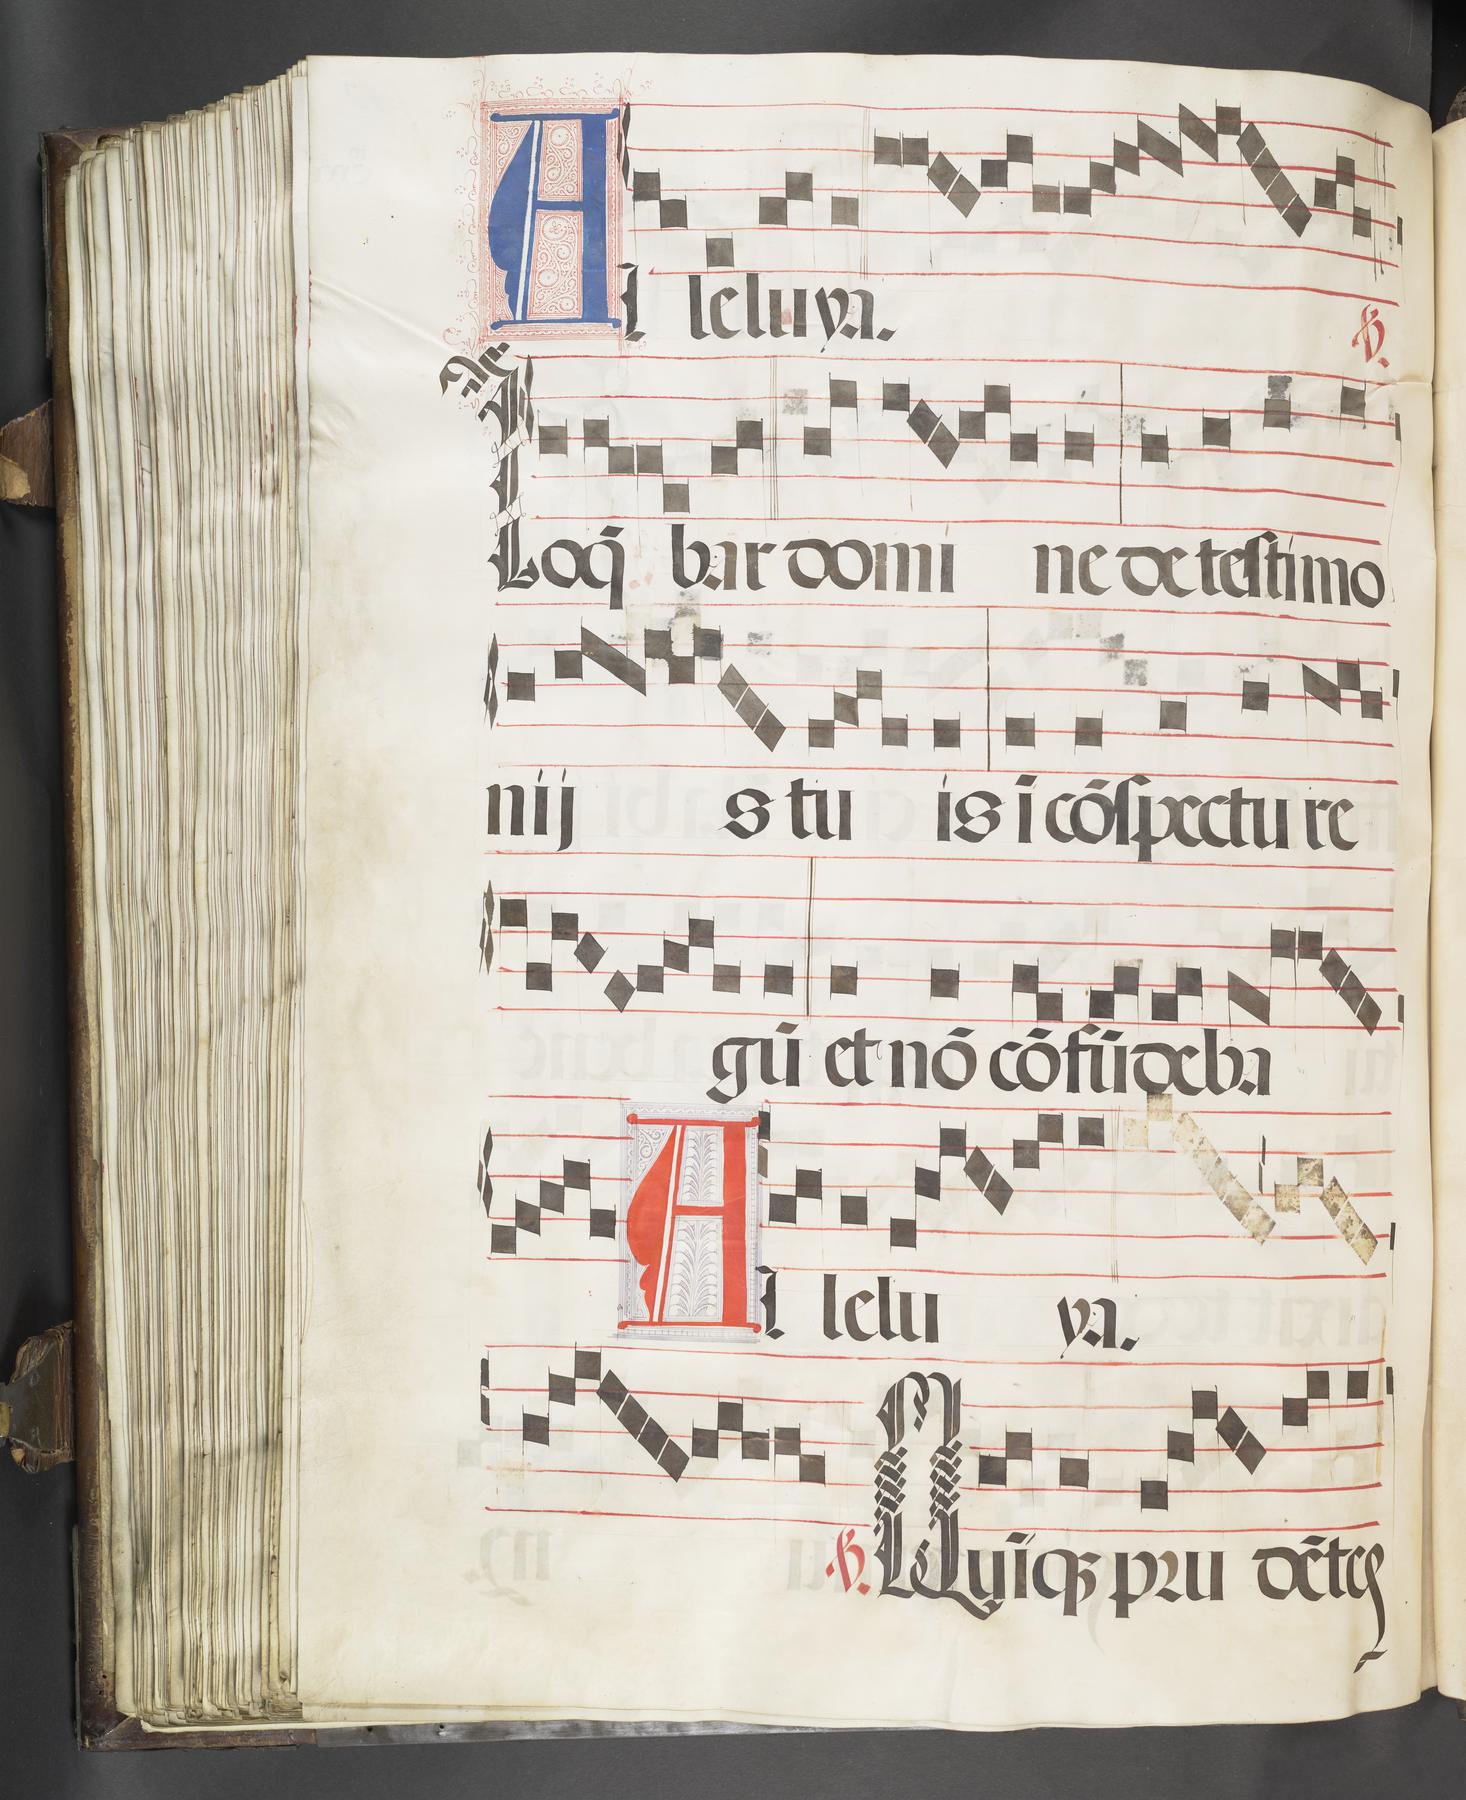 Al leluya. ℣.
Loq̄ bar domi ne de testimo
nij s tu is ī cōspectu re
gū et nō cōfūdeba
Al lelu ya.
℣. Quīqꝫ pru dētes